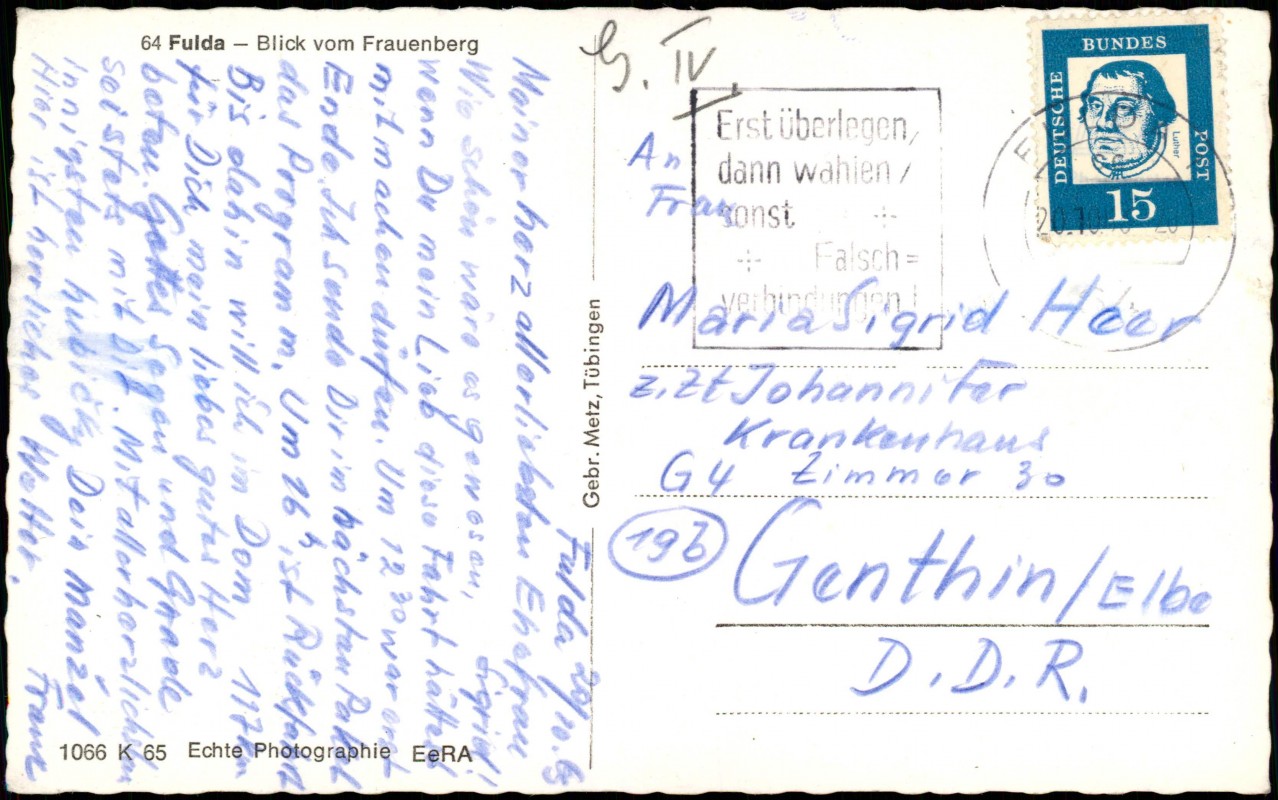 64 Fulda – Blick vom Frauenberg
Fulda 20/10. 
Meiner herzallerliebsten Ehefrau
Sigrid!
Wie schön wäre es gewesen,
wenn Du mein Lieb diese Fahrt hättest
mitmachen dürfen. Um 12 30 waren
Ende. Ich sende Dir im nächsten Paket
das Programm. Um 16 h, ist Rückfahrt
Bis dahin will ich im Dom
für Dich mein liebes gutes Herz
beten. Gottes Segen und Gnade
sei stets mit Dir. Mit allerherzlichsten
innigsten Dein Manzel
Hier ist herrliches Wetter. Franz
1066 K 65 Echte Photographie EeRA
Gebr. Metz, Tübingen
G. IV.
Erst überlegen,
dann wählen /
sonst
Falsch=
verbindungen!
DEUTSCHE BUNDES POST
Luther
15
An
Frau
Maria Sigrid Heer
z.Zt Johanniter
Krankenhaus
G4 Zimmer 30
19b
Genthin/Elbe
D.D.R.